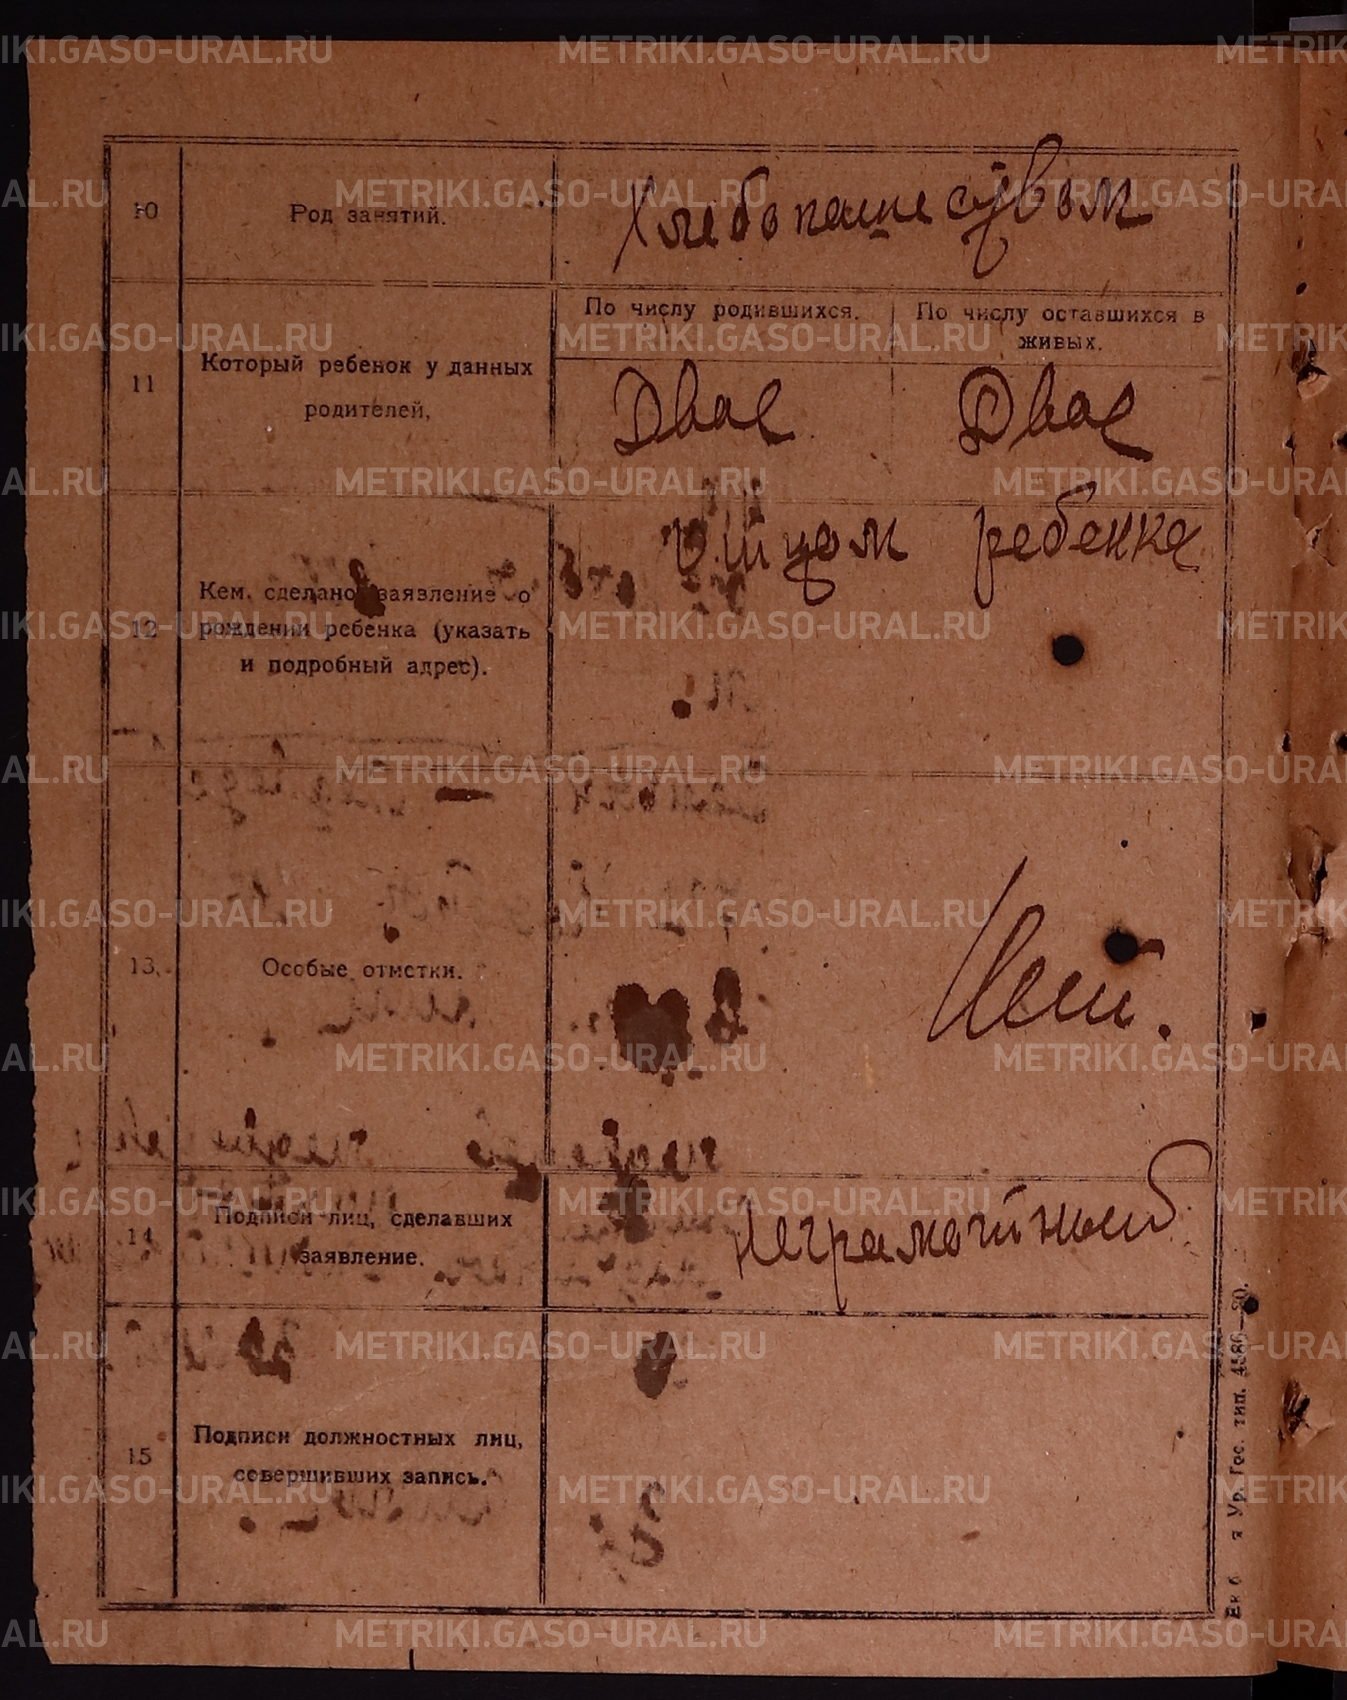 METRIKI.GASO-URAL.RU
10
Род занятий.
Хлебопашесувом
11
Который ребенок у данных
родителей.
По числу родившихся.
По числу оставшихся в
живых.
Двое
Двое
12
Кем сделано заявление о
рождении ребенка (указать
и подробный адрес).
Отцом ребенка
13.
Особые отметки.
Нет.
14
Подписи лиц, сделавших
заявление.
Неграмотный
15
Подписи должностных лиц,
совершивших запись.
Ур. Гос. тип. 4586—20.